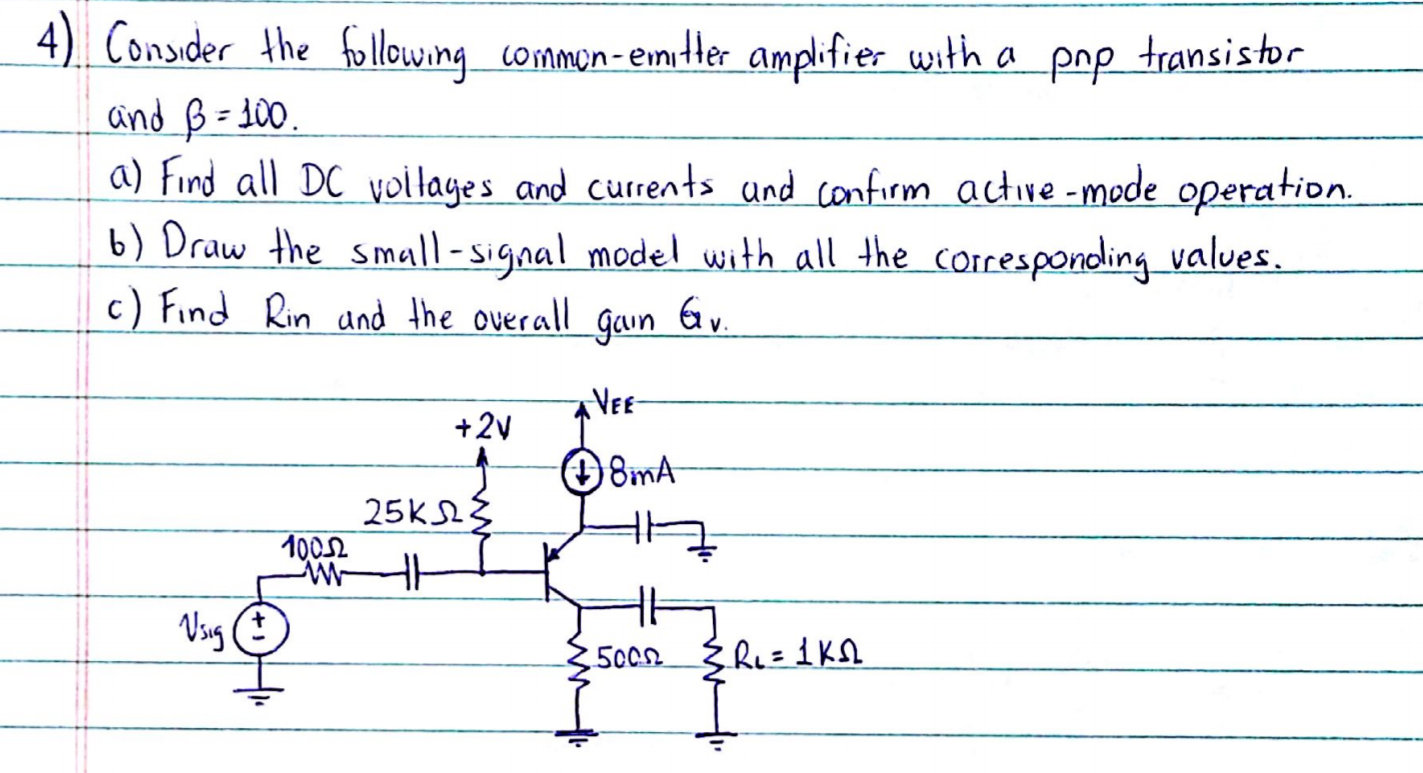 4) Consider the following common-emitter amplifier with a pnp transistor
and β = 100.
a) Find all DC voltages and currents and confirm active-mode operation.
b) Draw the small-signal model with all the corresponding values.
c) Find Rin and the overall gain Gv.
VEE
+2V
8mA
25KΩ
100Ω
Vsig
+
-
500Ω
RL = 1KΩ